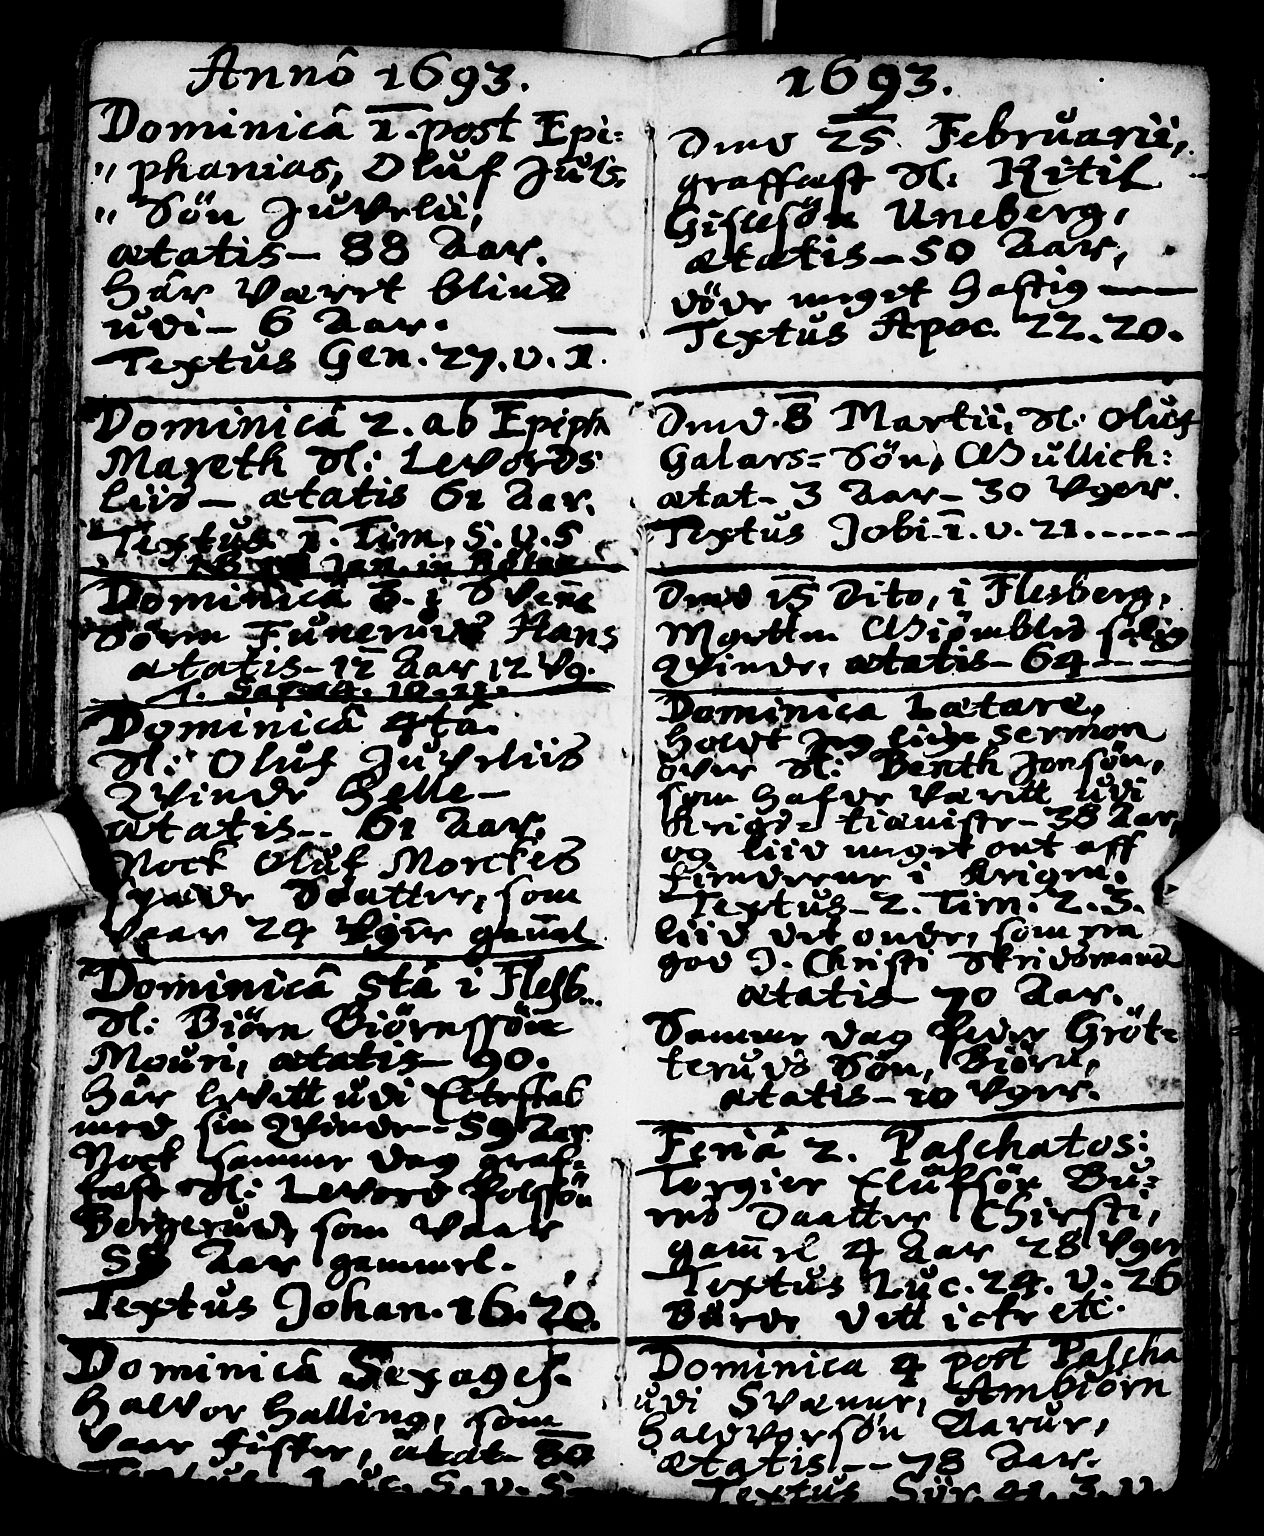 Anno 1693.
Dominicâ 1. post Epi=
" phanias, Oluf Juls
" Sön Juvelii,
ætatis – 88 Aar.
Hâr Været blind
udi – 6 Aar.
Textus Gen. 27. v. 1.
Dominicâ 2. ab Epiph
Mareth Sl: Levords
liid – ætatis 61 Aar.
Textus 1. Tim. 5. v. 5
Jan. in
Dominica 3. i Svene
Sörm Funeruds Hans
ætatis – 12 Aar 12 Vg.
T. Sap. 4. 10. 11.
Dominicâ 4ta.
Sl: Oluf Juveliis
Qvinde Helle –
ætatis -- 61 Aar.
Nock Oluf Morckes
spæde Daatter, som
Vaar 24 Vger gamel
Dominicâ 5tâ i Flesb...
Sl: Biörn Biörnssön
Mouri, ætatis – 90.
Hâr levitt udi Ecteskab
med sin Qvinde – 59 Aar
Nock samme dag graf=
fæst Sl: Levord Polssön
Bergerud, som Vaar
58 Aar gammel.
Textus Johan. 16. 20.
Dominicâ Sexages.
Halvor Halling, som
Vaar Fisker, ætat – 80
Textus Luc. 5. v. 5
1693.
Dmd 25. Februarii,
graffæst Sl: Kitil
Gislesön Uneberg,
ætatis – 50 Aar,
döde meget hastig —
Textus Apoc. 22. 20.
Dmd. 8 Martii, Sl: Oluf
Galars= Sön, Wullich:
ætat – 3 Aar – 30 Vger.
Textus Jobi. 1. v. 21. ------
Dmd 15 Dito, i Flesberg,
Morten Miömblid salig
Qvinde, ætatis – 64 ---
Dominica Lætare,
holdt Jeg liige sermon
over Sl: Benth Jonsön,
som hafde Væritt udi
Krigs= tieniste – 38 Aar,
og liid meget ont aff
fienderne i Krigen.
Textus – 2. Tim. 2. 3.
liid det onde, som en
god J. Christi Stridsmand
ætatis – 70 Aar.
Samme dag Peder Gröt=
teruds Sön, Biörn,
ætatis – 10 Vger.
Feriâ 2. Paschatos:
Torgier Elufsön Bu=
rns Daatter Chirsti,
gamel 4 Aar 28 Vger
Textus Luc. 24. v. 26
Burde ditt icke etc.
Dominica 4 post Pascha
udi Svænne, Ambiörn
Haldvorsön Aarur,
ætatis -- 78 Aar.
Textus Syr. 41. 3. v.